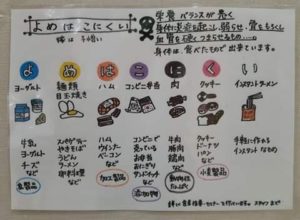 よめはこにくい
嫁は 小憎い
栄養バランスが悪く
身体に炎症を起こし、弱らせ、骨をもろくし
血管を硬くつまらせるもの…。
身体は、食べたもので出来ています。
よ め は こ に く い
ヨーグルト
麺類
目玉焼き
ハム
コンビニ弁当
肉
クッキー
インスタントラーメン
牛乳
ヨーグルト
チーズ
など
乳製品
スパゲティー
やきそば
うどん
ラーメン
など
ハム
ウインナー
ベーコン
など
加工製品
コンビニで
売っている
お弁当
おにぎり
サンドイッチ
など
添加物
牛肉
豚肉
鶏肉
など
動物性
たんぱく
クッキー
ドーナツ
パン
など
小麦製品
手軽に作れる
インスタントなもの